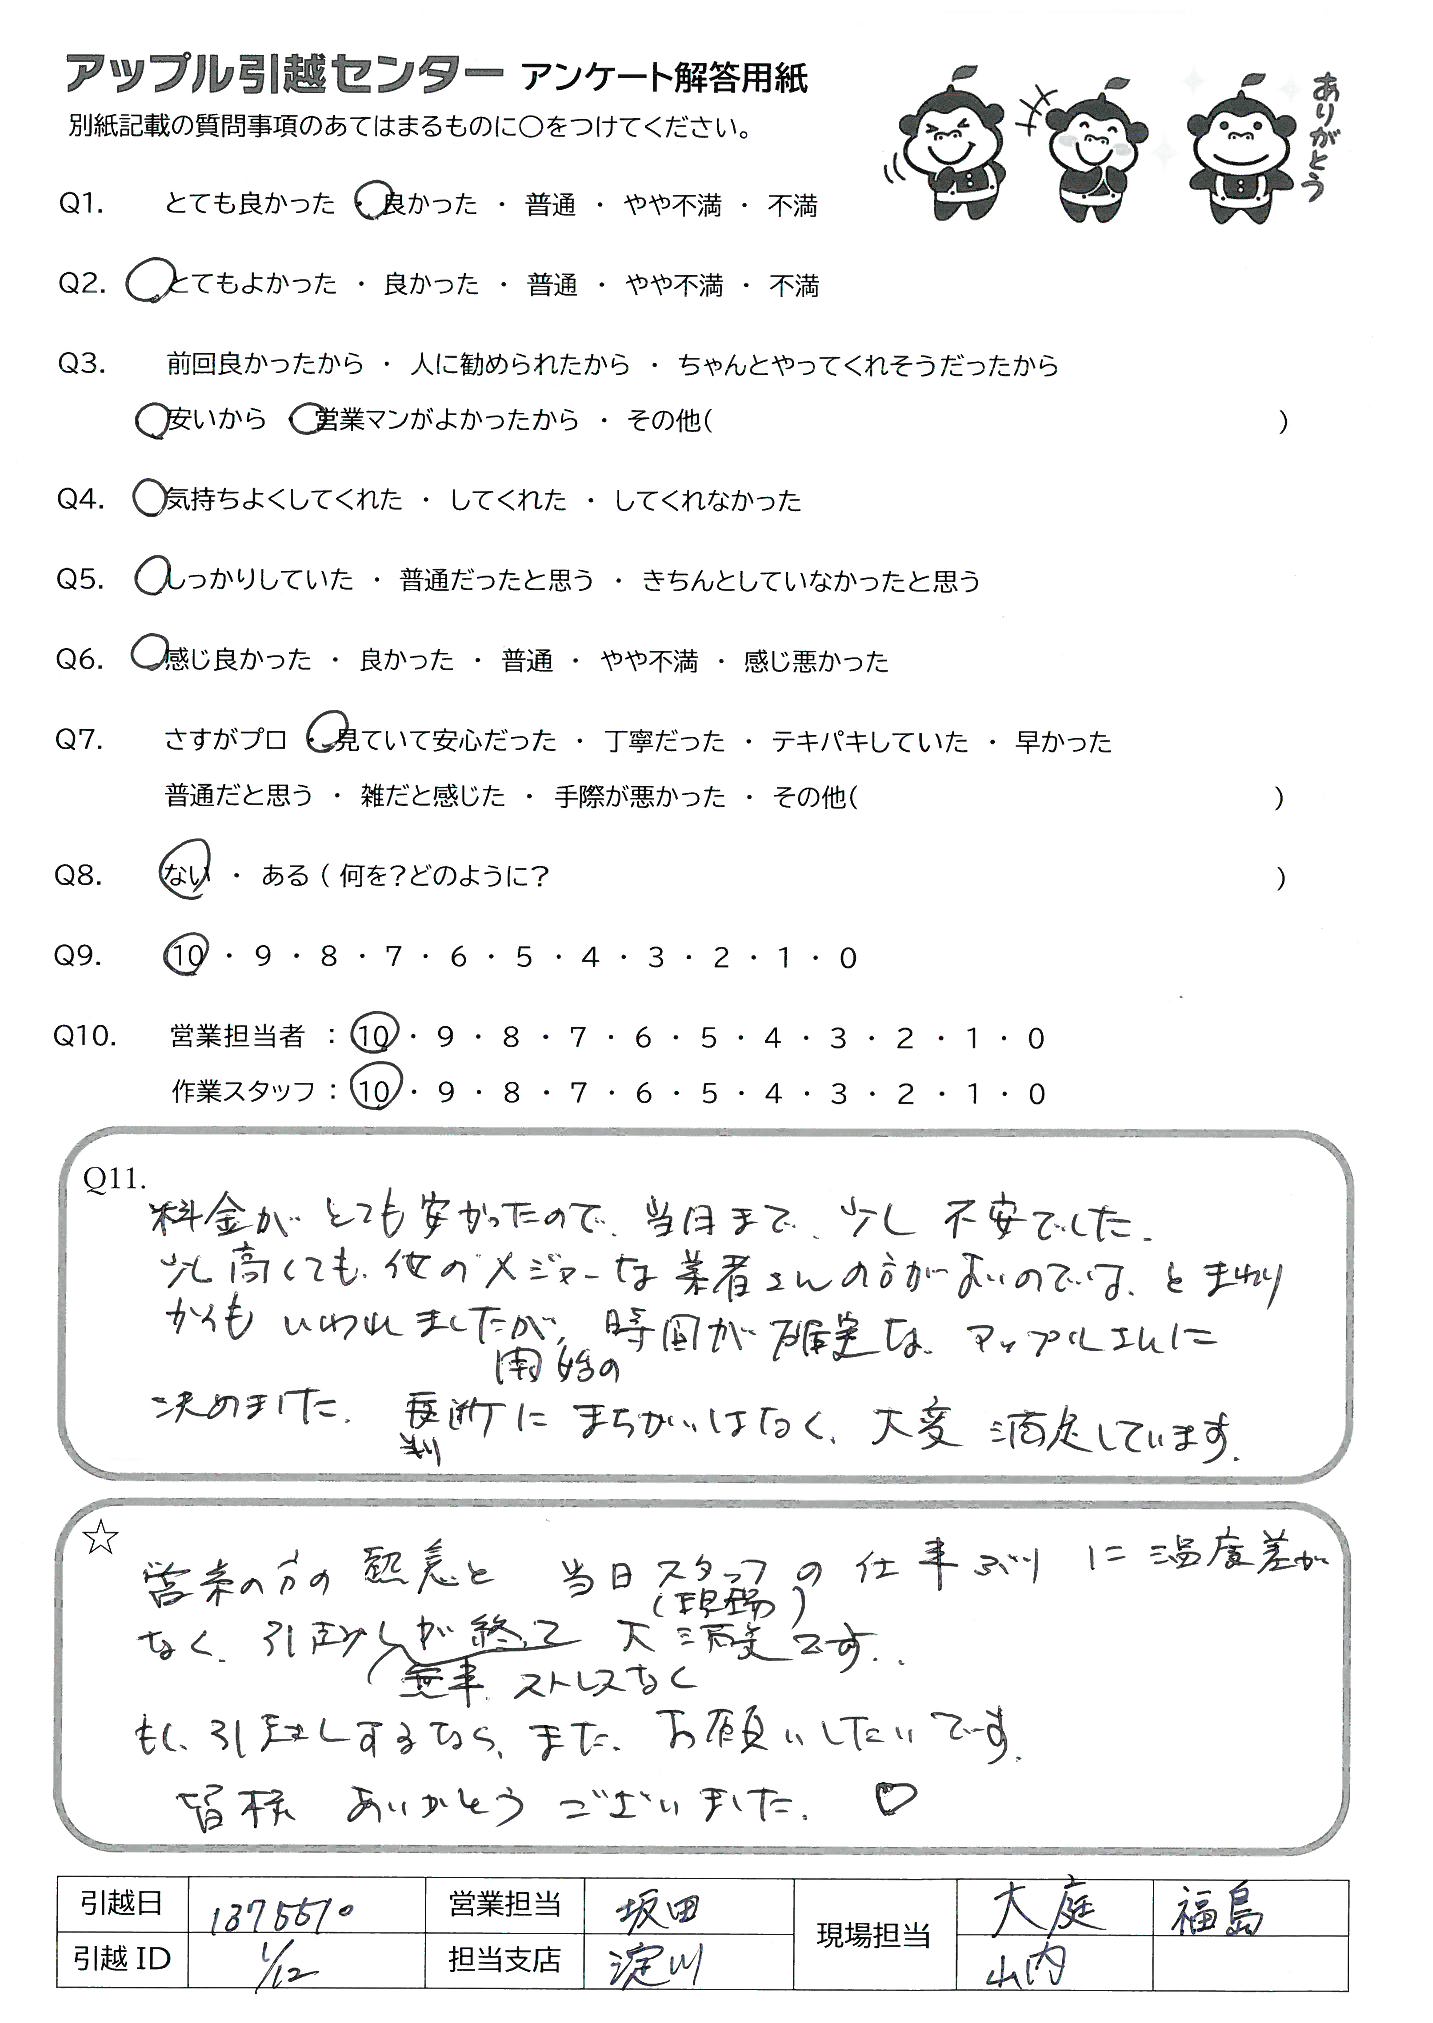 アップル引越センター アンケート解答用紙
別紙記載の質問事項のあてはまるものに○をつけてください。
ありがとう
Q1. とても良かった ・ 良かった ・ 普通 ・ やや不満 ・ 不満
Q2. とてもよかった ・ 良かった ・ 普通 ・ やや不満 ・ 不満
Q3. 前回良かったから ・ 人に勧められたから ・ ちゃんとやってくれそうだったから
安いから ・ 営業マンがよかったから ・ その他( )
Q4. 気持ちよくしてくれた ・ してくれた ・ してくれなかった
Q5. しっかりしていた ・ 普通だったと思う ・ きちんとしていなかったと思う
Q6. 感じ良かった ・ 良かった ・ 普通 ・ やや不満 ・ 感じ悪かった
Q7. さすがプロ ・ 見ていて安心だった ・ 丁寧だった ・ テキパキしていた ・ 早かった
普通だと思う ・ 雑だと感じた ・ 手際が悪かった ・ その他( )
Q8. ない ・ ある ( 何を?どのように? )
Q9. 10 ・ 9 ・ 8 ・ 7 ・ 6 ・ 5 ・ 4 ・ 3 ・ 2 ・ 1 ・ 0
Q10. 営業担当者 : 10 ・ 9 ・ 8 ・ 7 ・ 6 ・ 5 ・ 4 ・ 3 ・ 2 ・ 1 ・ 0
作業スタッフ : 10 ・ 9 ・ 8 ・ 7 ・ 6 ・ 5 ・ 4 ・ 3 ・ 2 ・ 1 ・ 0
Q11.
料金がとても安かったので、当日まで、少し不安でした。
少し高くても、他のメジャーな業者さんの方がよいのでは、とまわり
からもいわれましたが、時間が確実な、アップルさんに
開始の
決めました。 断にまちがいはなく、大変満足しています。
判
☆
営業の方の熱意と 当日スタッフの仕事ぶりに温度差が
(現場)
なく、引越しが終って 大満足です。
無事、ストレスなく
もし、引越しするなら、また、お願いしたいです。
皆様 ありがとうございました。♡
引越日 1375510 営業担当 坂田 現場担当 大庭 福島
引越ID 1/12 担当支店 淀川 山内